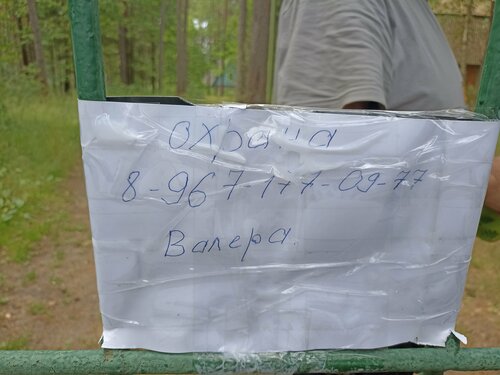 охрана
8-967-177-09-77
Валера.